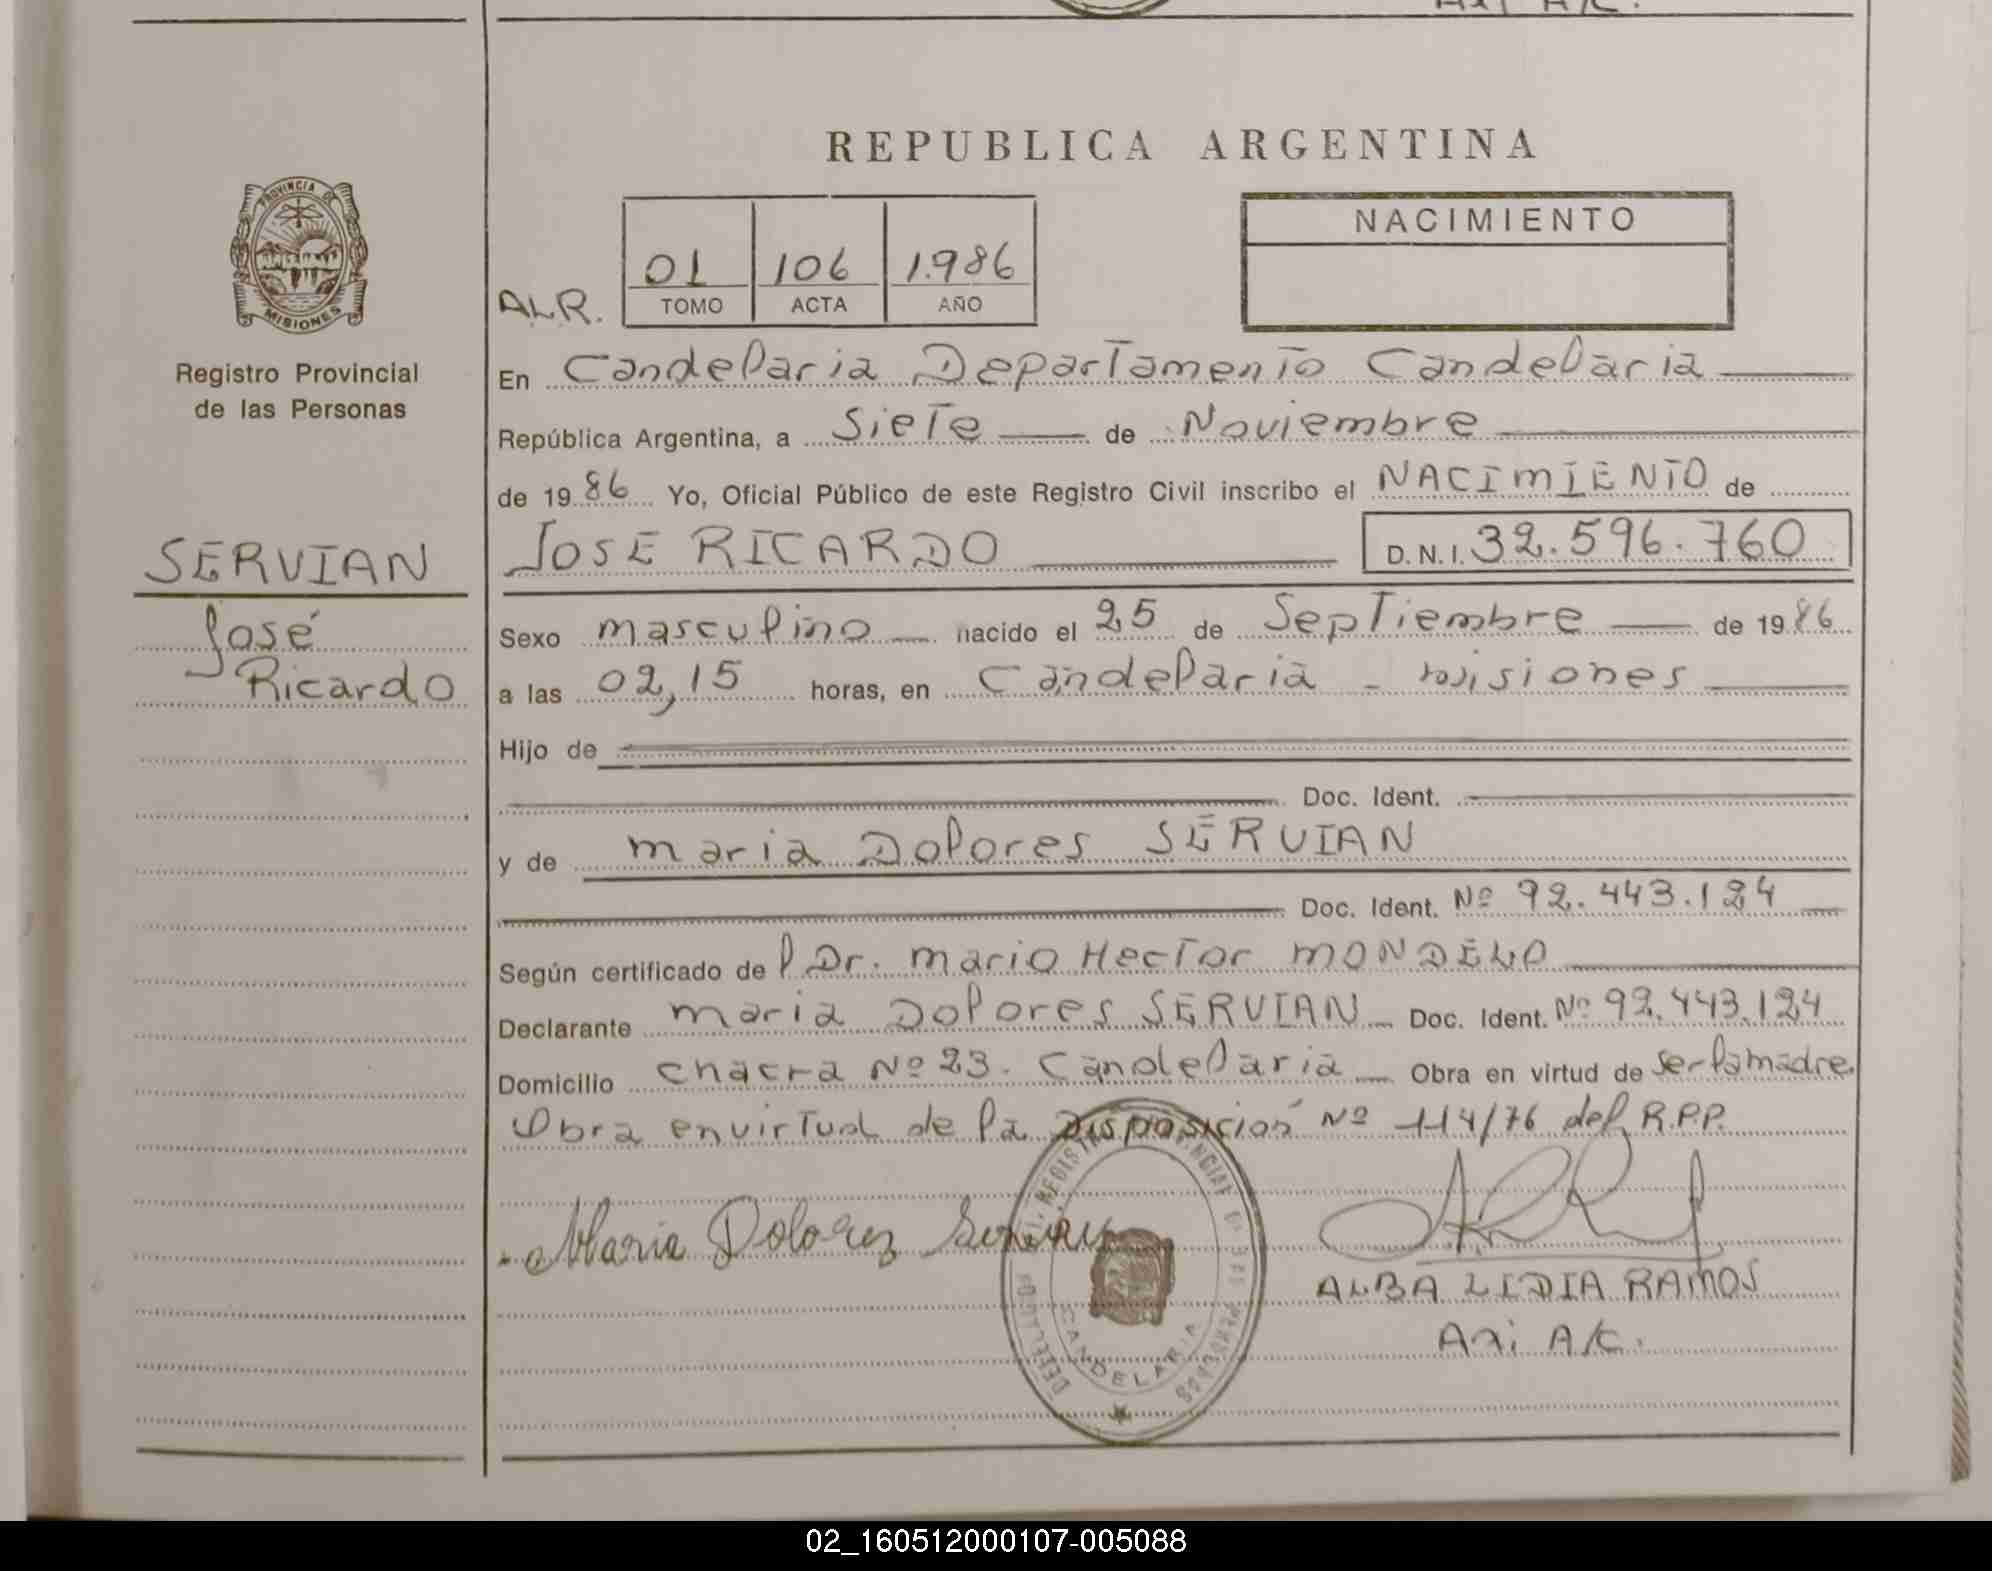 Axi A/C.
REPUBLICA ARGENTINA
PROVINCIA DE
MISIONES
Registro Provincial
de las Personas
NACIMIENTO
ALR.
01 106 1.986
TOMO ACTA AÑO
En Candelaria Departamento Candelaria
República Argentina, a Siete de Noviembre
de 1986 Yo, Oficial Público de este Registro Civil inscribo el NACIMIENTO de
SERVIAN
José
Ricardo
JOSE RICARDO D.N.I. 32.596.760
Sexo masculino nacido el 25 de Septiembre de 1986
a las 02,15 horas, en Candelaria - misiones
Hijo de
Doc. Ident.
y de maria Dolores SERVIAN
Doc. Ident. Nº 92.443.124
Según certificado de l Dr. mario Hector MONDELO
Declarante maria Dolores SERVIAN Doc. Ident. Nº 92.443.124
Domicilio chacra Nº 23. Candelaria Obra en virtud de ser la madre
Obra en virtud de la Disposición Nº 114/76 del R.P.P.
Maria Dolorez Servian
CANDELARIA
ALBA LIDIA RAMOS
Axi A/C.
02_160512000107-005088